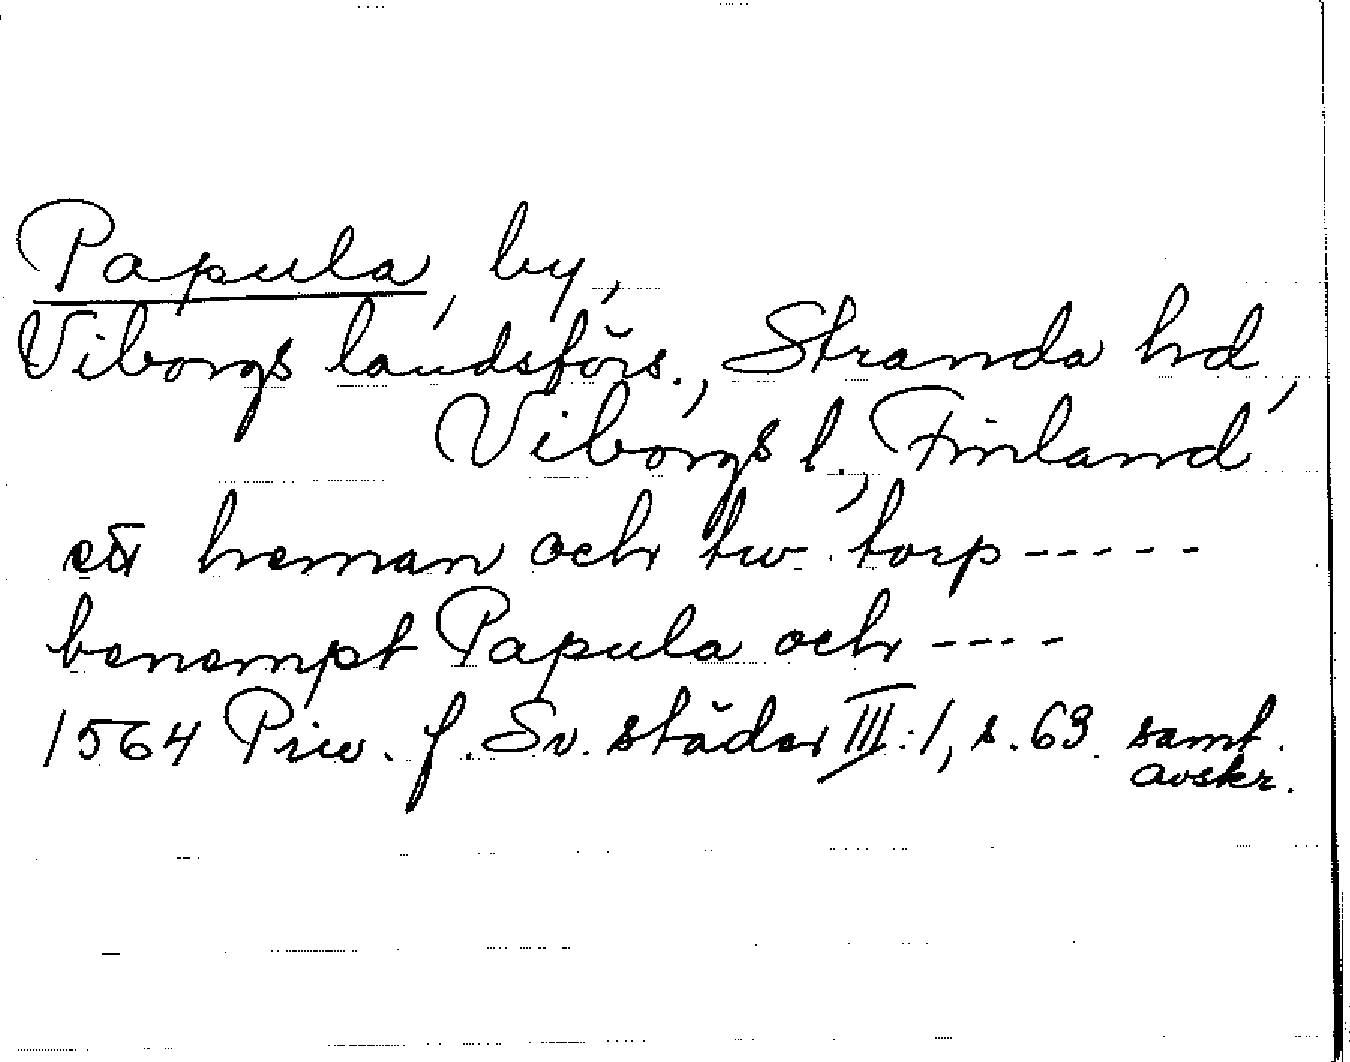 Papula, by,
Viborgs landsförs., Stranda hd,
Viborgs l., Finland
ett heman och tw torp -----
benempt Papula och ----
1564 Priv. f. Sv. städer III:1, s. 63. samt.
avskr.